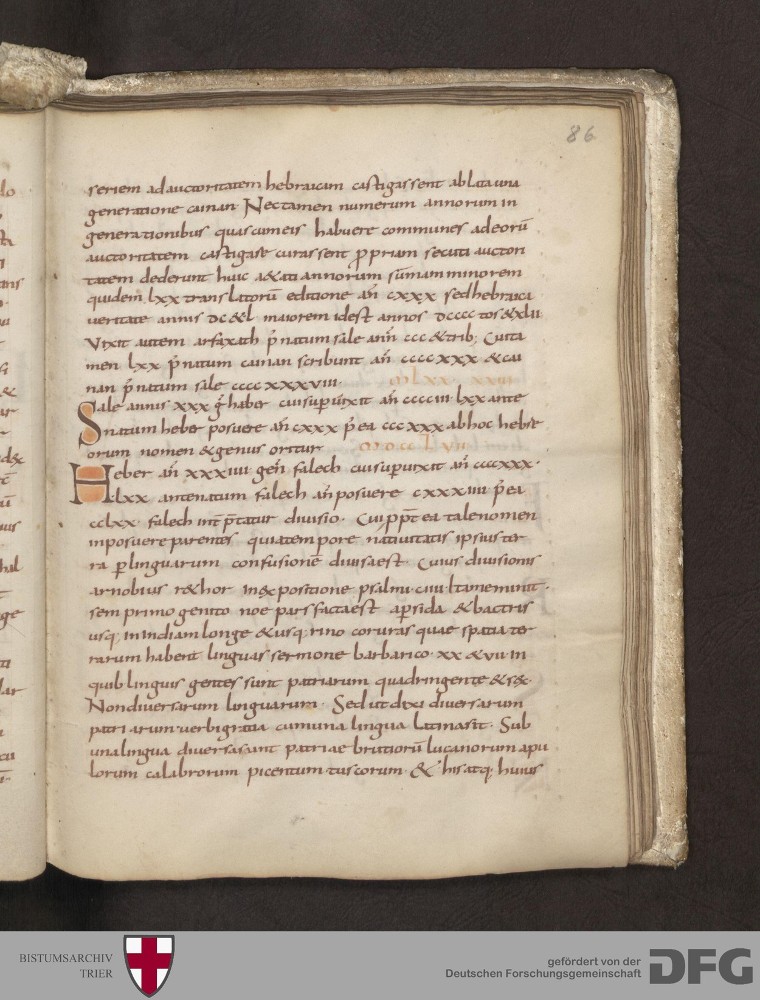 86
seriem ad auctoritatem hebraicam castigassent ablata una
generatione cainan Nec tamen numerum annorum in
generationibus quas cum eis habuere communes ad eorū
auctoritatem castigare curassent ꝓpriam secuti auctori
tatem dederunt huic aetati annorum sūmam minorem
quidem lxx translatorū editione an̄ cxxx sed hebraica
veritate annis dc&l maiorem idest annos dcccc tos &xlii
Vixit autem arfaxath p̄natum sale ann̄ ccc &trib; Cuita
men lxx p̄natum cainan scribunt an̄ cccc xxx &cai
nan p̄natum sale cccc xxxviii·
Sale annis xxx ḡ haber cui supuixit an̄ cccc iii lxx ante
natum heber posuere an̄ cxxx p̄ea ccc xxx ab hoc hebre
orum nomen &genus oritur
Heber an̄ xxxiiii gen̄ falech cui supuixit an̄ cccc xxx·
lxx antenatum falech an̄ posuere cxxxiiii p̄ea
cclxx· falech int̄p̄tatur divisio· Cui ꝓpt̄ ea tale nomen
inposuere parentes quia tempore nativitatis ipsius ter
ra p linguarum confusionē divisa est Cuius divisionis
arnobius r&hor in expositione psalmi ciiii
sem primogenito noe pars facta est a psida &bactris
usq; in indiam longe &usq; rino coruras quae spatia ter
rarum habent linguas sermone barbarico· xx &vii in
quib linguis gentes sunt patriarum quadringente &sex
Non diversarum linguarum· Sed ut dixi diversarum
patriarum verbi gratia cum una lingua latina sit· Sub
una lingua diversa sunt patriae brutiorū lucanorum apu
lorum calabrorum picentum tuscorum· & his atq; huius
BISTUMSARCHIV
TRIER
gefördert von der
Deutschen Forschungsgemeinschaft
DFG